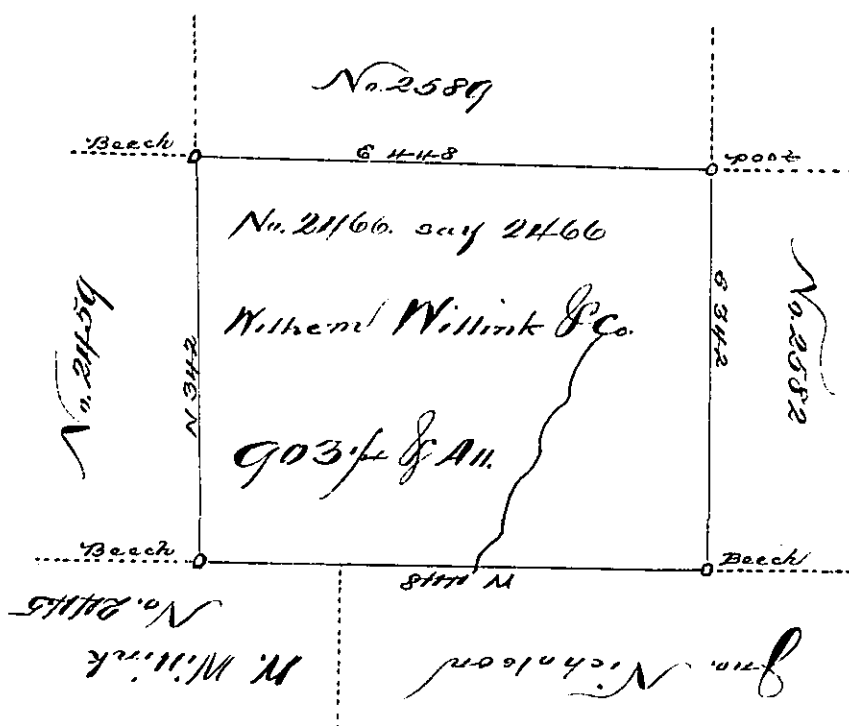 No. 2589
Beech
E 448
post
No. 2466. say 2466
Wilhem Willink & Co.
903 1/4 & All.
No. 2459
N 342
S 342
No. 2582
Beech
W 448
Beech
No. 2445
W. Willink
Jno. Nicholson